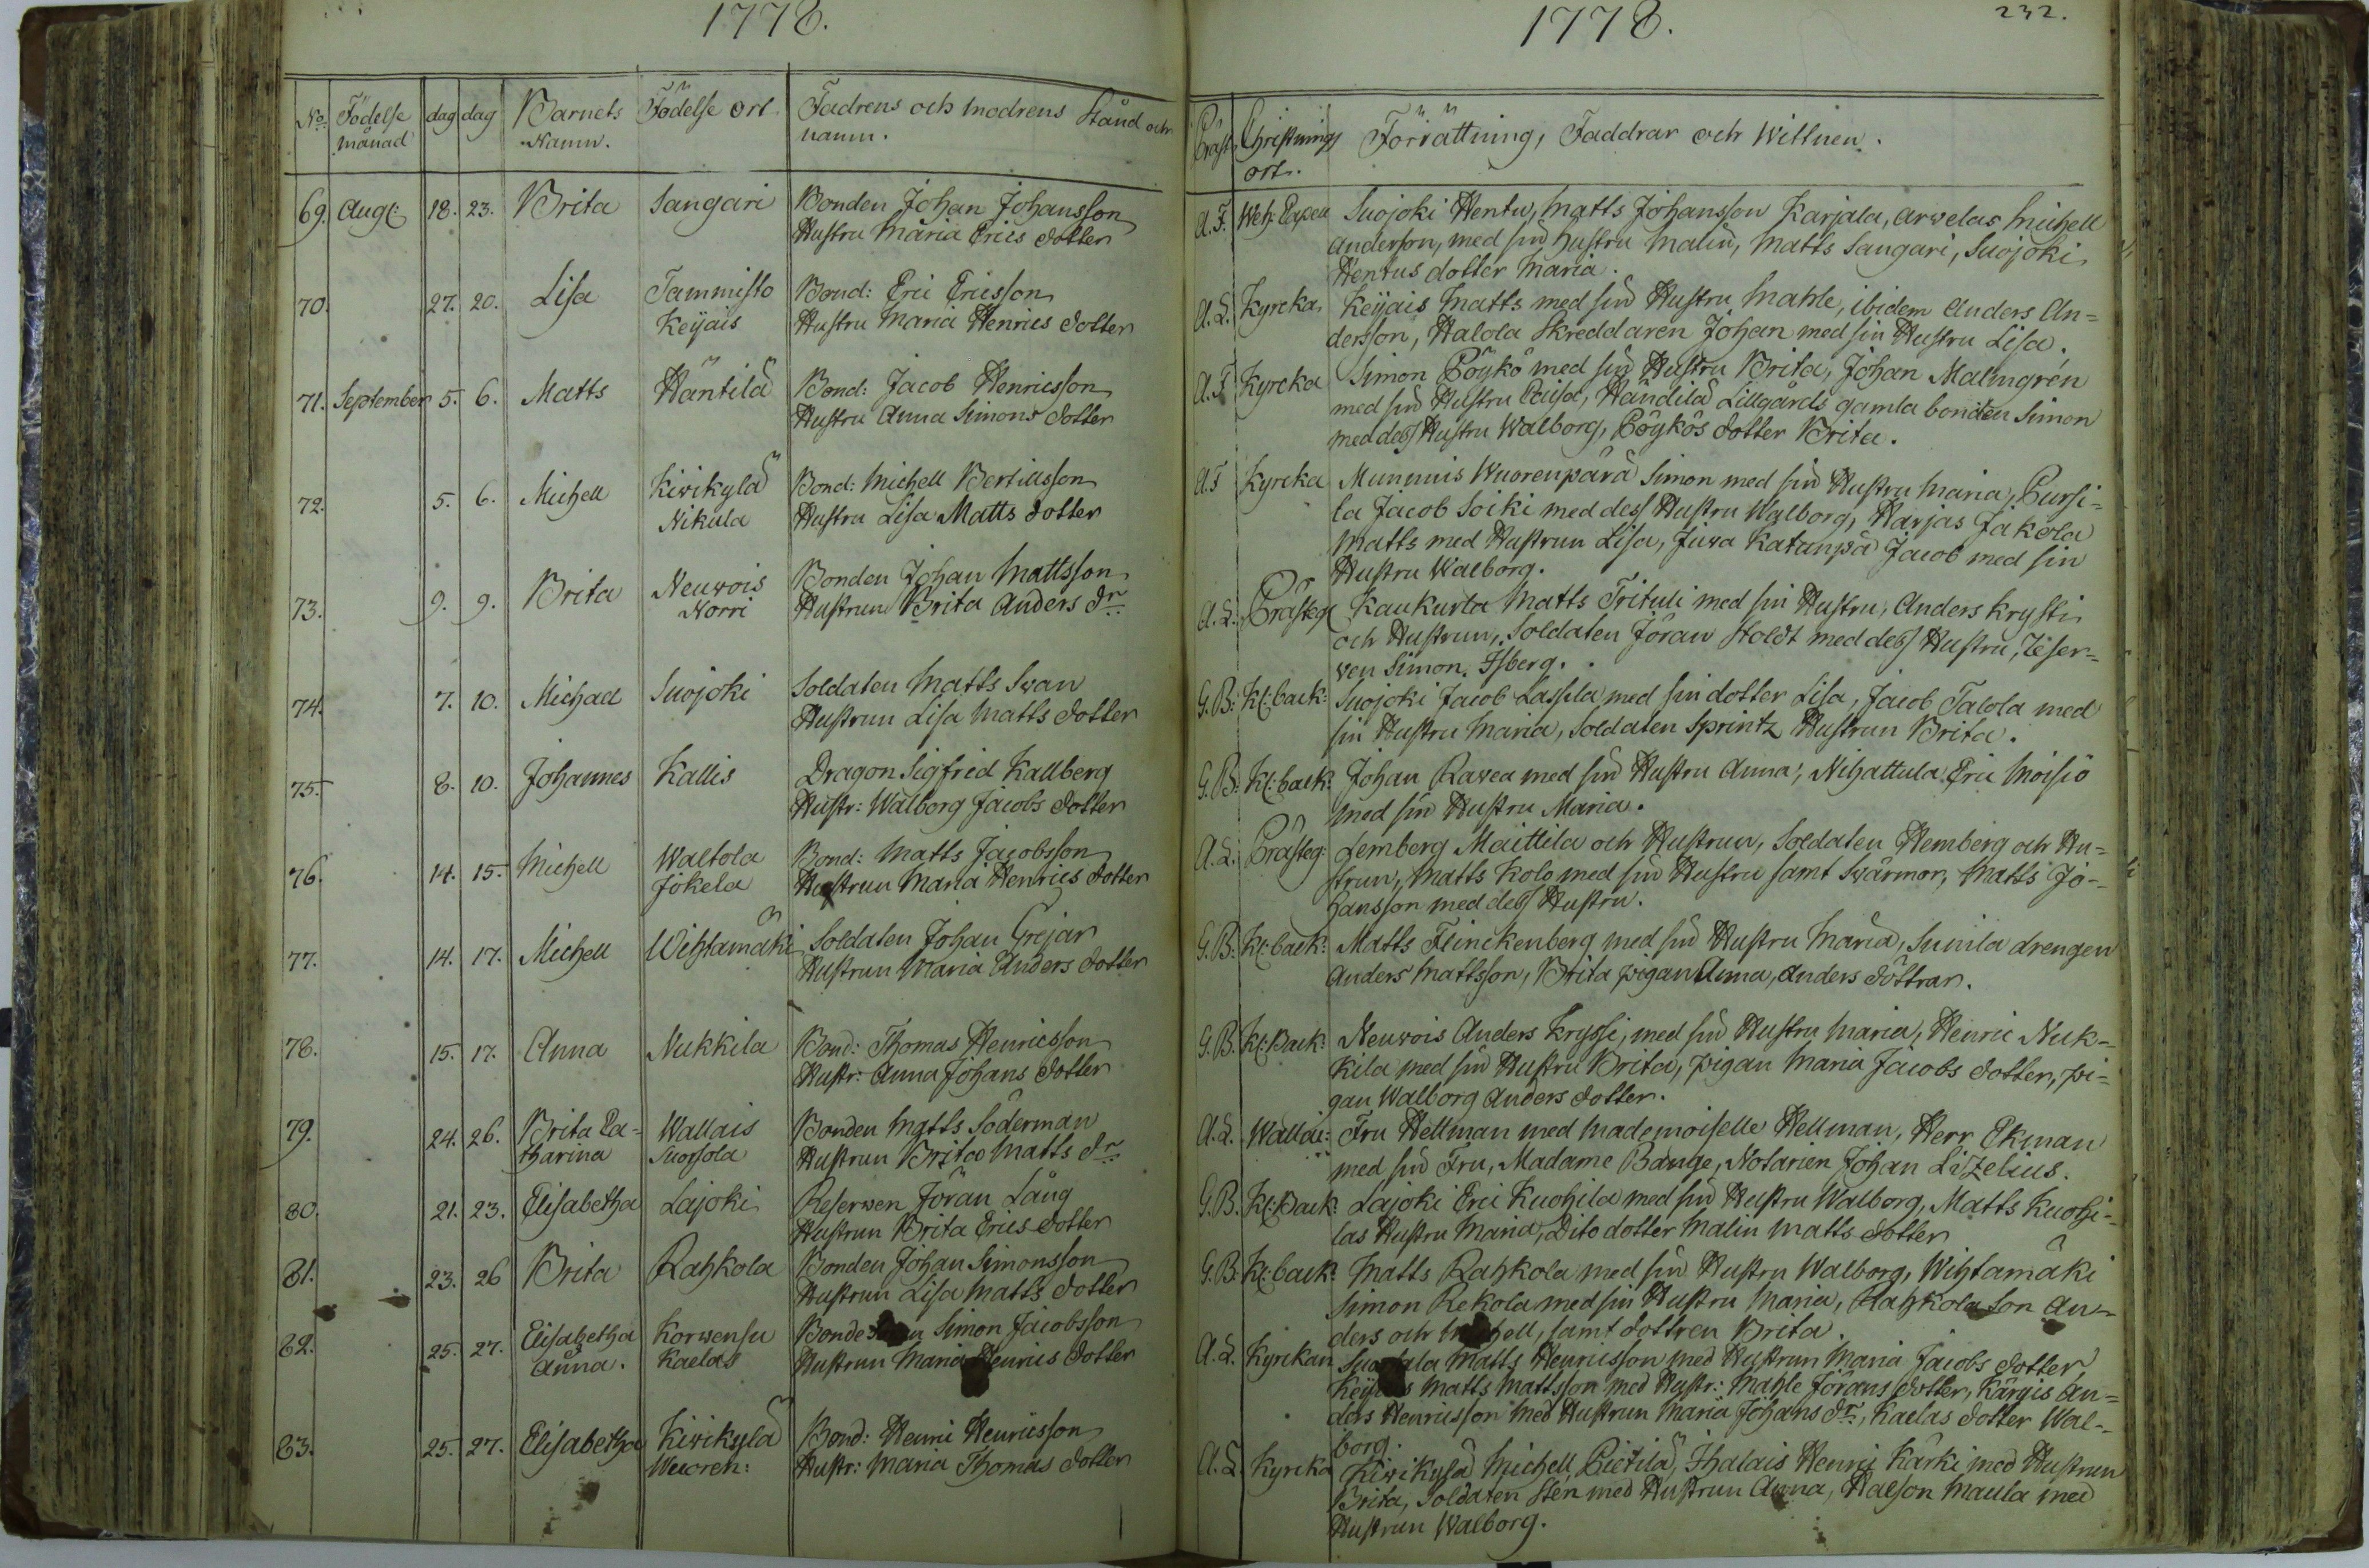 1778.
No: Födelse månad dag dag Barnets Namn. Födelse ort Fadrens och modrens Stånd och namn.
69. Aug: 18. 23. Brita Sangari Bonden Johan Johansson
Hustru Maria Erics dotter
70. 27. 20. Lisa Tammisto Bond: Eric Ericsson
Keijais Hustru Maria Henrics dotter
71. September 5. 6. Matts Häntilä Bond: Jacob Henricsson
Hustru Anna Simons dotter
72. 5. 6. Michell Kivikylä Bond: Michell Bertillsson
Nikula Hustru Lisa Matts dotter
73. 9. 9. Brita Neuvois Bonden Johan Mattsson
Norri Hustrun Brita Anders dr:
74. 7. 10. Michael Suojoki Soldaten Matts Swan
Hustrun Lisa Matts dotter
75. 8. 10. Johannes Kallis Dragon Sigfrid Kallberg
Hustr: Walborg Jacobs dotter
76. 14. 15. Michell Waltola Bond: Matts Jacobsson
Jokela Hustrun Maria Henrics dotter
77. 14. 17. Michell Wihtamäki Soldaten Johan Grejar
Hustrun Maria Anders dotter
78. 15. 17. Anna Nukkila Bond: Thomas Henricsson
Hustr: Anna Johans dotter
79. 24. 26. Brita Ca= Wallais Bonden Matts Söderman
tharina Suorsola Hustrun Brita Matts dr:
80. 21. 23. Elisabetha Lajoki Reserwen Jöran Lång
Hustrun Brita Erics dotter
81. 23. 26 Brita Rahkola Bonden Johan Simonsson
Hustrun Lisa Matts dotter
82. 25. 27. Elisabetha Korwensu Bonde Simon Jacobsson
Anna. Kaelas Hustrun Maria Henrics dotter
83. 25. 27. Elisabetha Kivikylä Bond: Henric Henricsson
Wuoren: Hustr: Maria Thomas dotter
1778.
232.
Präst Christnings ort. Förrättning, Faddrar och Wittnen.
A.F. Weh: Capell Suojoki Hentu, Matts Johansson Karjala, Arwelas Michell
Andersson, med sin hustru Malin, Matts Sangari, Suojoki
Hentus dotter Maria.
A.L. Kyrcka Keijais Matts med sin Hustru Mahle, ibidem Anders An=
dersson, Halola Skreddaren Johan med sin Hustru Lisa.
A.F Kyrcka Simon Pöykö med sin Hustru Brita, Johan Malmgrén
med sin Hustru Caisa, Händilä Lillgårds gamla bonden Simon
med dess Hustru Walborg, Pöykös dotter Brita.
A.F Kyrcka Munnuis Wuorenpärä Simon med sin Hustru Maria, Pursi=
la Jacob Soiki med dess Hustru Walborg, Harjas Jakola
Matts med Hustrun Lisa, Juwa Katanpä Jacob med sin
Hustru Walborg.
A.L. Prästeg Kaukurla Matts Trituli med sin Hustru, Anders Krysti
och Hustrun, Soldaten Jöran Stoldt med dess Hustru, Reser=
wen Simon Isberg.
G.B: Kl:back: Suojoki Jacob Lassila med sin dotter Lisa, Jacob Talola med
sin Hustru Maria, Soldaten Sprintz Hustrun Brita.
G.B: Kl:back: Johan Rawea med sin Hustru Anna, Nihattula Eric Moisiö
med sin Hustru Maria.
A.L. Prästeg: Lemberg Maittila och Hustrun, Soldaten Hemberg och Hu=
strun, Matts Kolo med sin Hustru samt Swärmor, Matts Jo=
hansson med dess Hustru.
G.B: Kl:back: Matts Flinckenberg med sin Hustru Maria, Sunila drengen
Anders Mattsson, Brita pigan Anna, Anders döttrar.
G.B. Kl:Back: Neuvois Anders Kryssi, med sin Hustru Maria, Henric Nuk=
kila med sin Hustru Brita, pigan Maria Jacobs dotter, pi=
gan Walborg Anders dotter.
A.L. Wallai: Fru Hellman med Mademoiselle Hellman, Herr Ekman
med sin Fru, Madame Bange, Notarien Johan Lizelius.
G.B. Kl:Back: Lajoki Eric Kuohila med sin Hustru Walborg, Matts Kuohi=
las Hustru Maria, Dito dotter Malin Matts dotter
G.B Kl:back: Matts Rahkola med sin Hustru Walborg, Wihtamäki
Simon Rekola med sin Hustru Maria, Rahkola Son An=
ders och Michell, samt dottren Brita.
A.L. Kyrckan Matts Henricsson med Hustrun Maria Jacobs dotter,
Matts Mattsson med Hustr: Mahle Jörans dotter, Kärgis An=
ders Henricsson med Hustrun Maria Johans dr:, Kaelas dotter Wal=
borg.
A.L. Kyrcka Kivikylä Michell Pietilä, Ihalais Henric Karki med Hustrun
Brita, Soldaten Sten med Hustrun Anna, Halson Maula med
Hustrun Walborg.